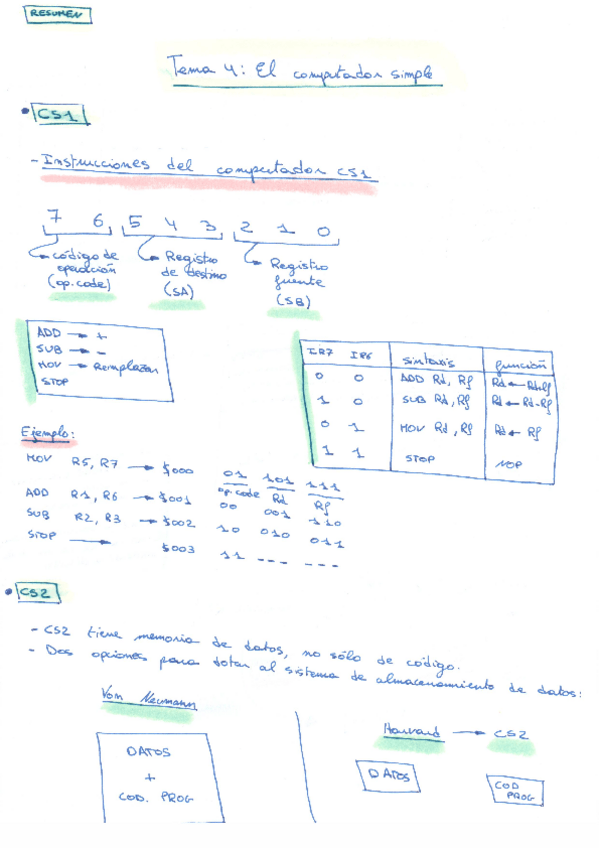 RESUMEN
Tema 4: El computador simple
• CS1
- Instrucciones del computador CS1
7 6 5 4 3 2 1 0
código de operación (op.code)
Registro de destino (SA)
Registro fuente (SB)
ADD → +
SUB → -
MOV → Remplazar
STOP
IR7 IR6 sintaxis función
0 0 ADD Rd, Rf Rd ← Rd+Rf
1 0 SUB Rd, Rf Rd ← Rd-Rf
0 1 MOV Rd, Rf Rd ← Rf
1 1 STOP NOP
Ejemplo:
MOV R5, R7 → $000 01 101 111
op.code Rd Rf
ADD R1, R6 → $001 00 001 110
SUB R2, R3 → $002 10 010 011
STOP → $003 11 --- ---
• CS2
- CS2 tiene memoria de datos, no sólo de código.
- Dos opciones para dotar al sistema de almacenamiento de datos:
Von Neumann
Harvard → CS2
DATOS
+
COD. PROG
DATOS
COD
PROG